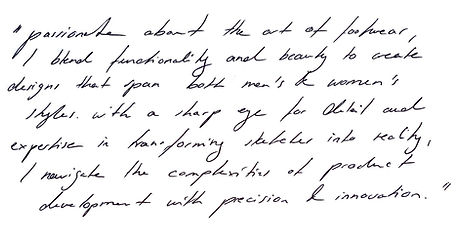 "passionate about the art of footwear,
I blend functionality and beauty to create
designs that span both men's & women's
styles. with a sharp eye for detail and
expertise in transforming sketches into reality,
I navigate the complexities of product
development with precision & innovation."